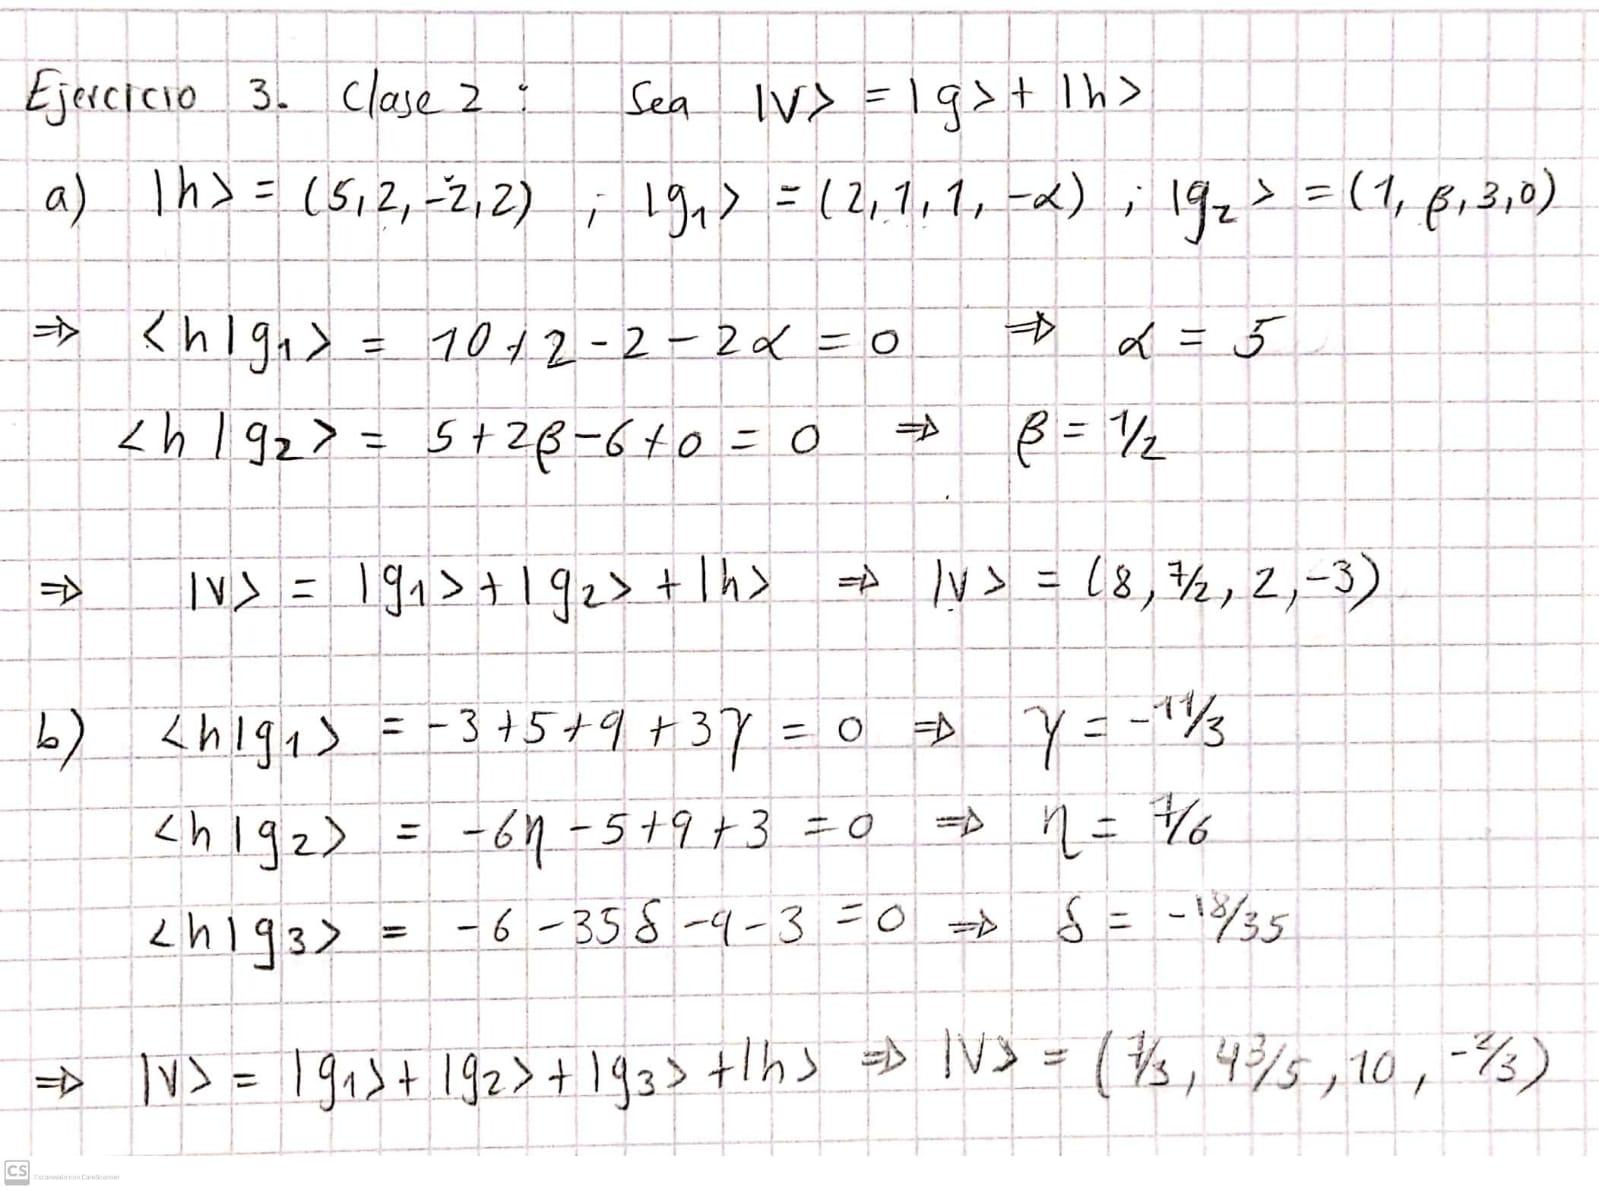 Ejercicio 3. Clase 2: Sea |V> = |g> + |h>
a) |h> = (5,2,-2,2) ; |g₁> = (2,1,1,-α) ; |g₂> = (1, β,3,0)
⇒ <h|g₁> = 10+2-2-2α = 0 ⇒ α = 5
<h|g₂> = 5+2β-6+0 = 0 ⇒ β = 1/2
⇒ |V> = |g₁> + |g₂> + |h> ⇒ |V> = (8, 7/2, 2, -3)
b) <h|g₁> = -3+5+9+3γ = 0 ⇒ γ = -11/3
<h|g₂> = -6η-5+9+3 = 0 ⇒ η = 7/6
<h|g₃> = -6-35δ-9-3 = 0 ⇒ δ = -18/35
⇒ |V> = |g₁> + |g₂> + |g₃> + |h> ⇒ |V> = (7/3, 43/5, 10, -2/3)
CS Escaneado con CamScanner